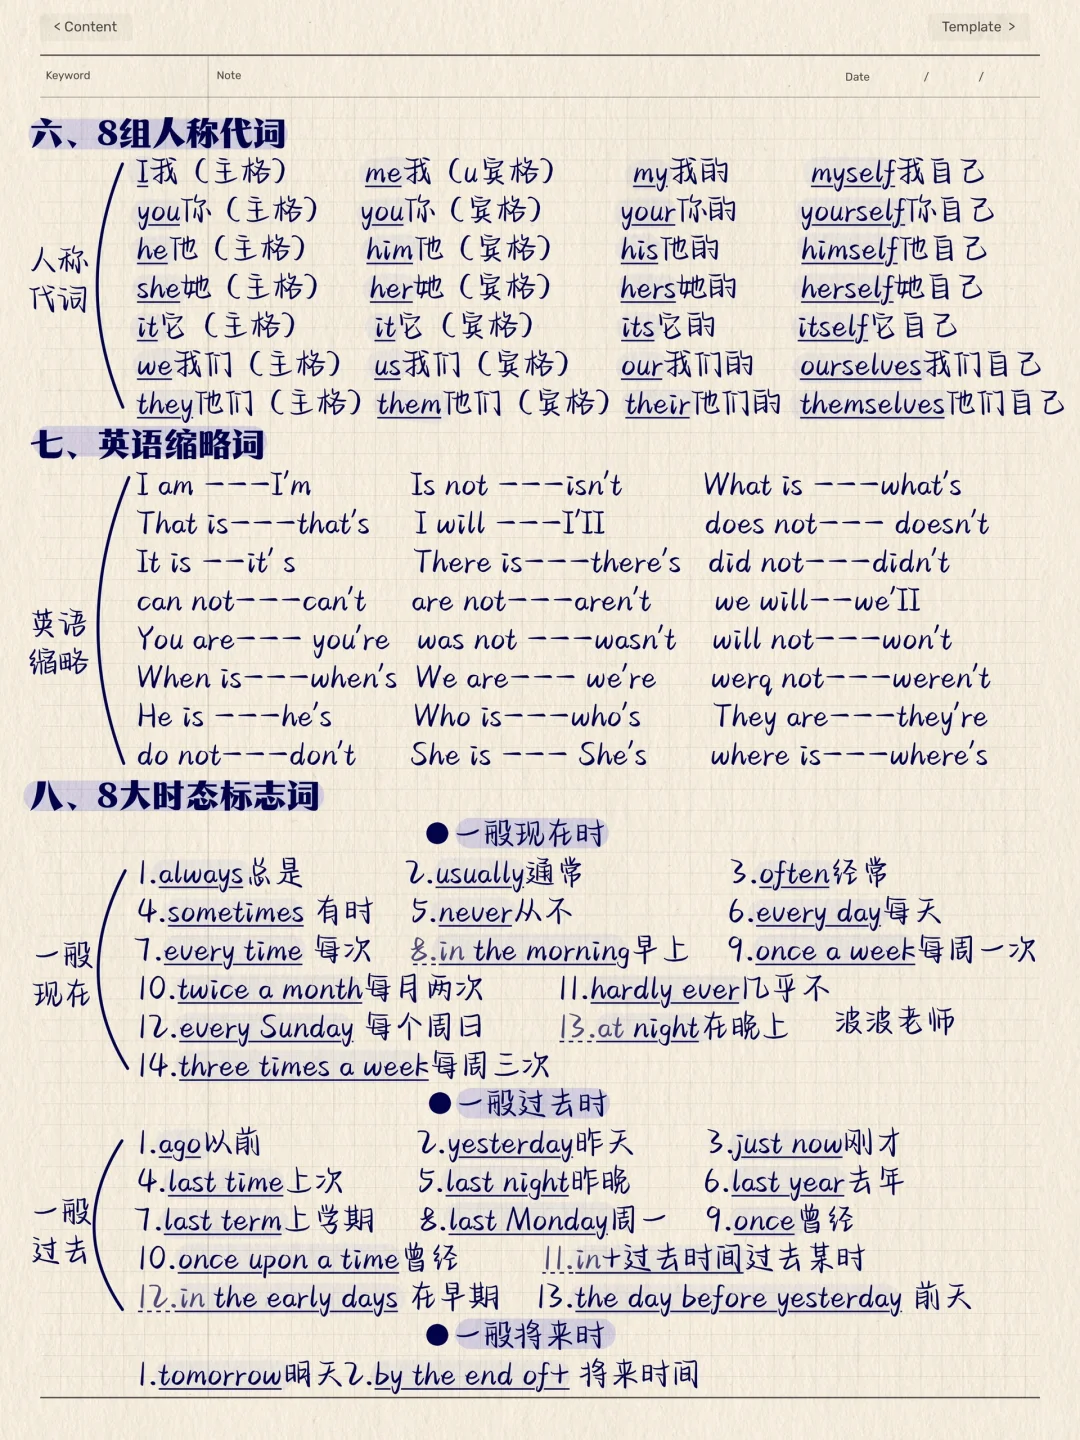 < Content Template >
Keyword Note Date / /
六、8组人称代词
I我（主格） me我（u宾格） my我的 myself我自己
you你（主格） you你（宾格） your你的 yourself你自己
he他（主格） him他（宾格） his他的 himself他自己
人称代词
she她（主格） her她（宾格） hers她的 herself她自己
it它（主格） it它（宾格） its它的 itself它自己
we我们（主格） us我们（宾格） our我们的 ourselves我们自己
they他们（主格） them他们（宾格） their他们的 themselves他们自己
七、英语缩略词
I am ---I'm Is not ---isn't What is ---what's
That is---that's I will ---I'II does not--- doesn't
It is --it' s There is---there's did not---didn't
can not---can't are not---aren't we will--we'II
英语缩略
You are--- you're was not ---wasn't will not---won't
When is---when's We are--- we're werq not---weren't
He is ---he's Who is---who's They are---they're
do not---don't She is --- She's where is---where's
八、8大时态标志词
●一般现在时
1.always总是 2.usually通常 3.often经常
4.sometimes 有时 5.never从不 6.every day每天
7.every time 每次 8.in the morning早上 9.once a week每周一次
一般现在
10.twice a month每月两次 11.hardly ever几乎不
12.every Sunday 每个周日 13.at night在晚上 波波老师
14.three times a week每周三次
●一般过去时
1.ago以前 2.yesterday昨天 3.just now刚才
4.last time上次 5.last night昨晚 6.last year去年
7.last term上学期 8.last Monday周一 9.once曾经
一般过去
10.once upon a time曾经 11.in+过去时间过去某时
12.in the early days 在早期 13.the day before yesterday 前天
●一般将来时
1.tomorrow明天2.by the end of+ 将来时间